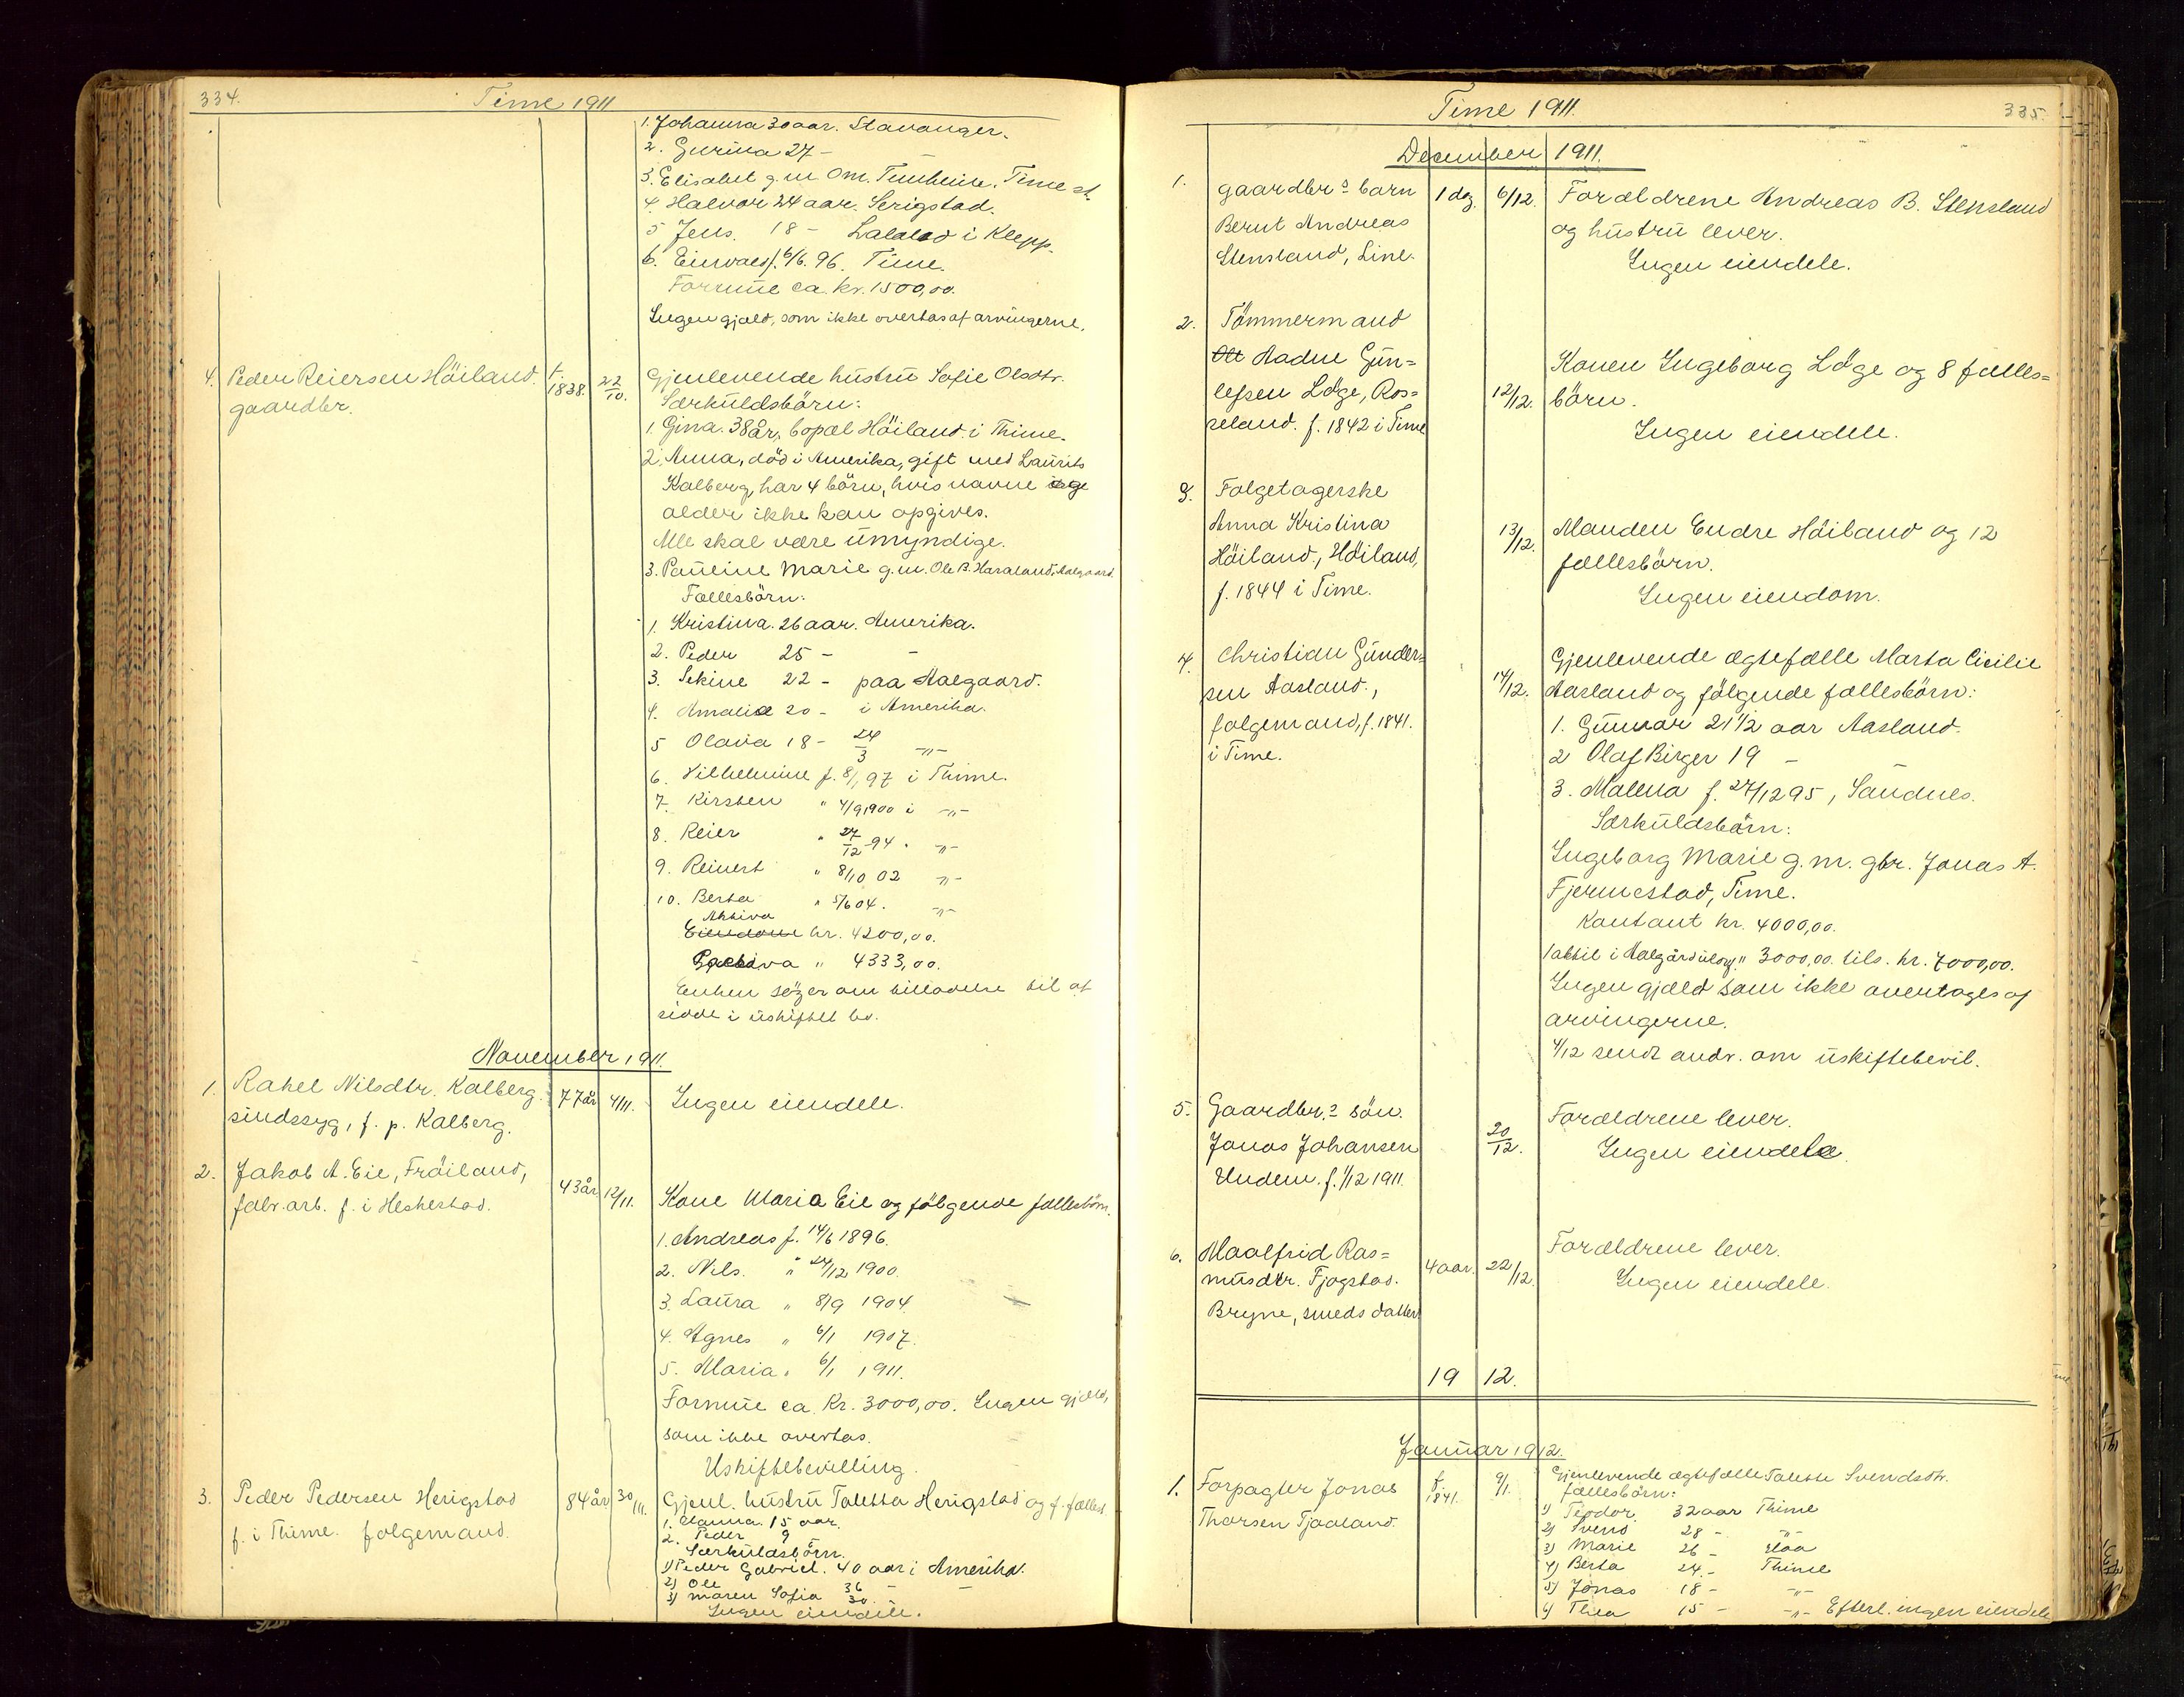 334.
Time 1911
1. Johanna 30 aar. Stavanger.
2. Gurina 27 –
3. Elisabet g. m. Om. Tunheim. Time st.
4. Halvor 24 aar. Serigstad.
5 Jens. 18 – Lalalid i Klepp.
6. Einvald f. 6/6. 96. Time.
Formue ca. kr. 1500,00.
Ingen gjæld, som ikke overtas af arvingerne.
4. Peder Reiersen Höiland. f. 1838. 22/10. Gjenlevende hustru Sofie Olsdtr.
gaardbr.
Særkuldsbörn:
1. Gina. 38 år, bopæl Höiland i Thime.
2. Anna, död i Amerika, gift med Laurits
Kalberg, har 4 börn, hvis navne og
alder ikke kan opgives.
Alle skal være umyndige.
3. Pauline Marie g. m. Ole B. Haraland, Aalgaard.
Fællesbörn:
1. Kristina. 26 aar. Amerika.
2. Peder 25 – –
3. Sekine 22 – paa Aalgaard.
4. Amalie 20 – i Amerika.
5 Olava 18 – 24/3 –"–
6. Vilhelmine f. 8/1 97 i Thime.
7. Kirsten " 4/9 1900 i –"–
8. Reier " 27/12 94 . –"–
9. Reinert " 8/10 02 –"–
10. Berta " 5/6 04. –"–
Aktiva
Eiendom kr. 4200,00.
Passiva " 4333,00.
Enken söger om tilladelse til at
sidde i uskiftet bo.
November 1911.
1. Rahel Nilsdtr. Kalberg. 77 år 4/11. Ingen eiendele.
sindssyg, f. p. Kalberg.
2. Jakob A. Eie, Fröiland, 43 år 12/11. Kone Maria Eie og fölgende fællesbörn.
fabr. arb. f. i Heskestad.
1. Andreas f. 14/6 1896.
2. Nils. " 24/12 1900.
3. Laura " 8/9 1904.
4. Agnes " 6/1 1907.
5. Maria " 6/1 1911.
Formue ca. Kr. 3000,00. Ingen gjæld,
som ikke overtas.
Uskiftebevilling.
3. Peder Pedersen Herigstad 84 år 30/11. Gjenl. hustru Taletta Herigstad og f. fællesb.
f. i Thime. folgemand.
1. Hanna. 15 aar.
2. Peder 9 –
Særkuldsbörn.
1) Peder Gabriel. 40 aar i Amerika.
2) Ole 36 –
3) Maren Sofia 30. –
Ingen eiendele.
335.
Time 1911.
December 1911.
1. gaardbrs barn 1 dag. 6/12. Forældrene Andreas B. Stensland
Bernt Andreas og hustru lever.
Stensland, Line. Ingen eiendele.
2. Tömmermand
Ole Aadne Gun=
lefsen Löge, Ros=
seland. f. 1842 i Time
12/12. Konen Ingeborg Löge og 8 fælles=
börn.
Ingen eiendele.
3. Folgetagerske
Anna Kristina
Höiland, Höiland,
f. 1844 i Time.
13/12. Manden Endre Höiland og 12
fællesbörn.
Ingen eiendom.
4. Christian Gunder=
sen Aasland,
folgemand, f. 1841.
i Time.
14/12. Gjenlevende ægtefælle Marta Cicilie
Aasland og fölgende fællesbörn:
1. Gunnar 21 1/2 aar Aasland.
2 Olaf Birger 19 – –
3. Malena f. 27/12 95, Sandnes.
Særkuldsbörn:
Ingeborg Marie g. m. gbr. Jonas A.
Fjermestad, Time.
Kontant kr. 4000,00.
1 aktie i Aalgård uldv. " 3000,00. tils. kr. 7000,00.
Ingen gjæld som ikke overtages af
arvingerne.
4/12 sendt andr. om uskiftebevil.
5. Gaardbrs sön. 20/12. Forældrene lever.
Jonas Johansen Ingen eiendele.
Undem. f. 1/12 1911.
6. Maalfrid Ras= 4 aar. 22/12. Forældrene lever.
musdtr. Fjogstad. Ingen eiendele.
Bryne, smeds datter
19 12.
Januar 1912.
1. Forpagter Jonas f. 1841. 9/1. Gjenlevende ægtefælle Talette Svendsdtr.
Thorsen Tjaaland. fællesbörn:
1) Teodor. 32 aar Thime
2) Svend 28 – –"–
3) Marie 26 – Haa
4) Berta 24. – Thime
5) Jonas 18 – –"–
6) Thea 15 – –"– Efterl. ingen eiendele